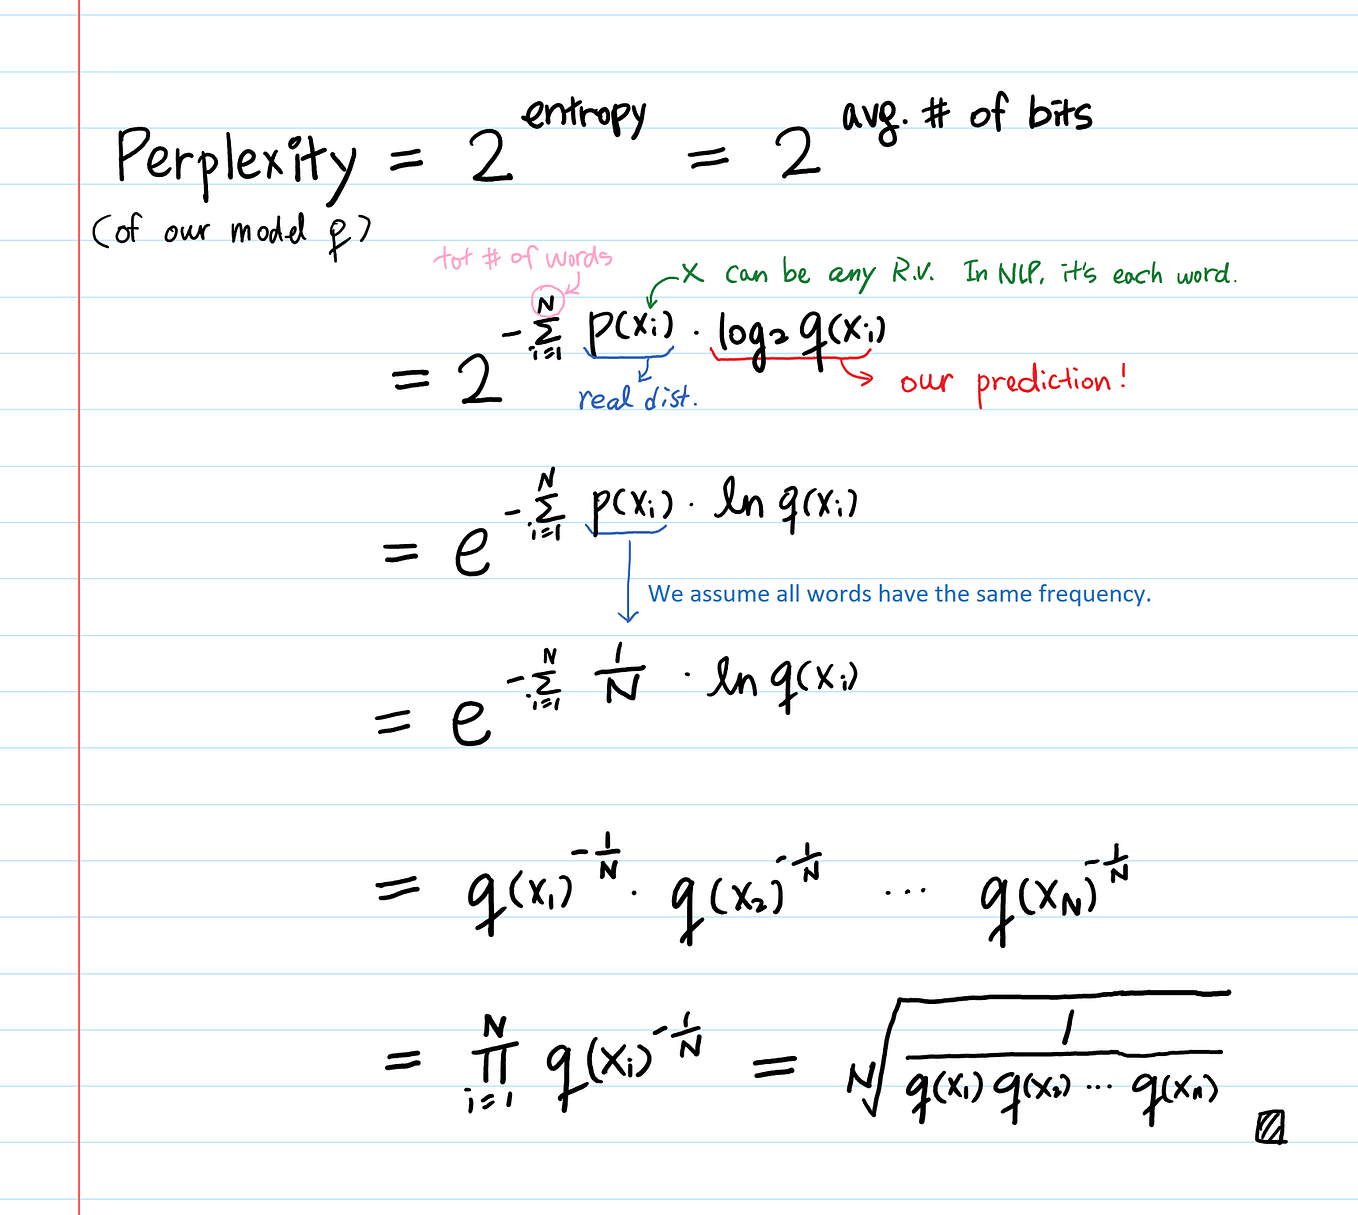 Perplexity = 2^entropy = 2^avg. # of bits
(of our model q)
tot # of words
x can be any R.V. In NLP, it's each word.
= 2^(-Σ_{i=1}^{N} p(xᵢ) · log₂ q(xᵢ))
real dist.
our prediction!
= e^(-Σ_{i=1}^{N} p(xᵢ) · ln q(xᵢ))
We assume all words have the same frequency.
= e^(-Σ_{i=1}^{N} 1/N · ln q(xᵢ))
= q(x₁)^(-1/N) · q(x₂)^(-1/N) ··· q(x_N)^(-1/N)
= Π_{i=1}^{N} q(xᵢ)^(-1/N) = ᴺ√(1/(q(x₁) q(x₂) ··· q(x_N)))